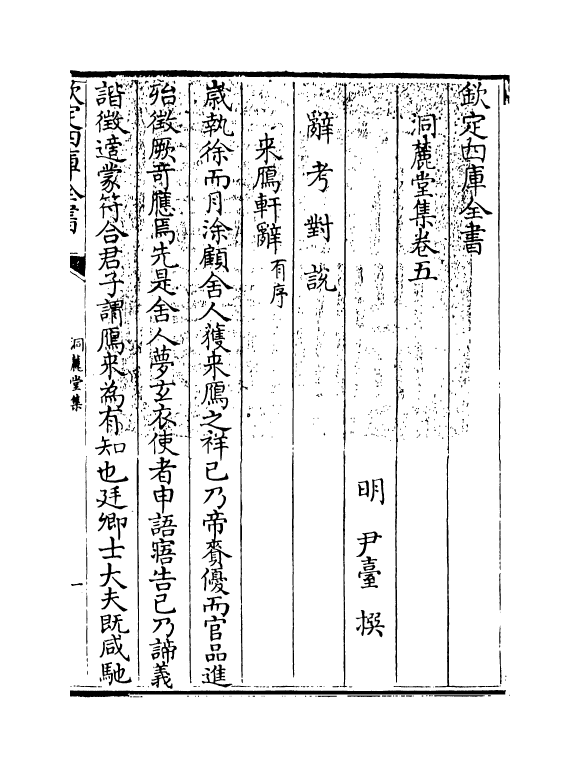 欽定四庫全書
洞麓堂集卷五
明 尹臺 撰
辭考對説
來鴈軒辭有序
歳執徐而月涂顧舍人獲來鴈之祥已乃帝賚優而官品進
殆徵厥奇應焉先是舍人夢玄衣使者申語寤告已乃諦義
諧徵逹蒙符合君子謂鴈來為有知也廷卿士大夫既咸馳
欽定四庫全書
洞麓堂集
一